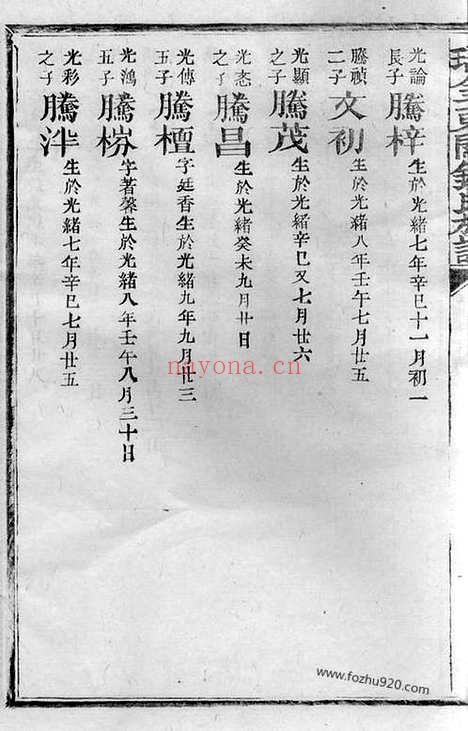 光論長子 騰梓 生於光緒七年辛巳十一月初一
騰禎二子 文初 生於光緒八年壬午七月廿五
光顯之子 騰茂 生於光緒辛巳又七月廿六
光悫之子 騰昌 生於光緒癸未九月廿日
光傳五子 騰檀 字延香生於光緒九年九月廿三
光鴻五子 騰榜 字著馨生於光緒八年壬午八月三十日
光彩之子 騰泮 生於光緒七年辛巳七月廿五
nayona.cn
www.fozhu920.com